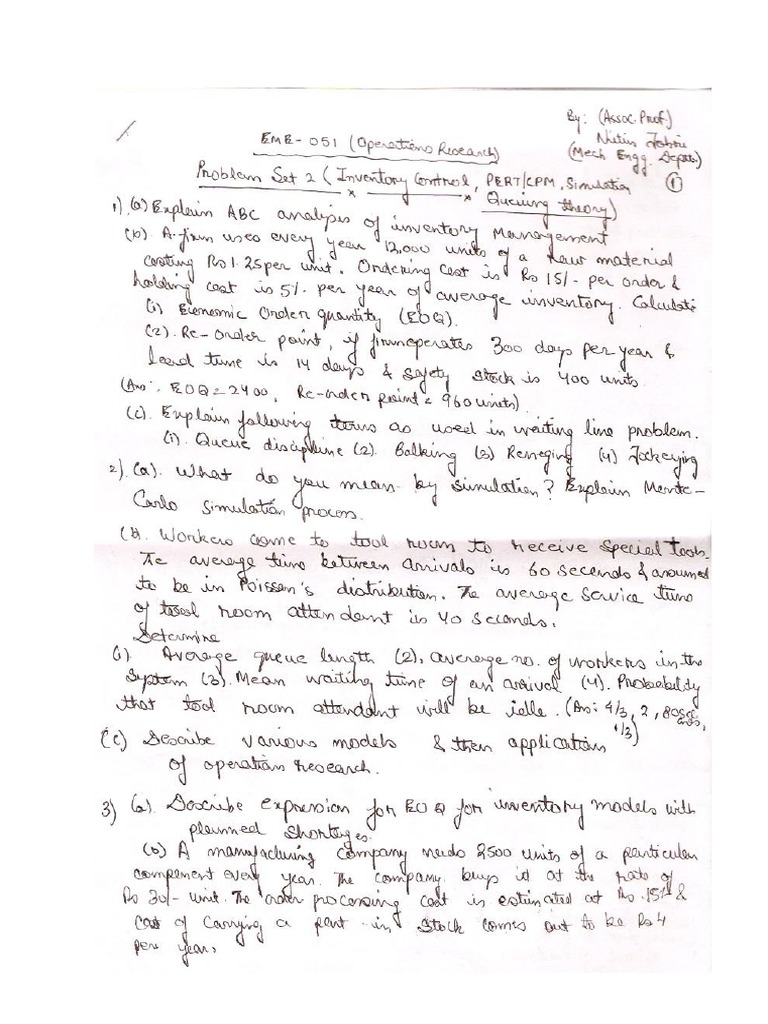 By: (Assoc. Prof.)
EME-051 (Operations Research)
Nitin Johri
(Mech Engg. Deptt.)
Problem Set 2 (Inventory Control, PERT/CPM, Simulation
1
Queuing theory)
1). (a) Explain ABC analysis of inventory Management
(b). A firm uses every year 12,000 units of a raw material
costing Rs 1.25 per unit. Ordering cost is Rs 15/- per order &
holding cost is 5% per year of average inventory. Calculate
(1) Economic Order quantity (EOQ).
(2). Re-order point, if firm operates 300 days per year &
lead time is 14 days & safety stock is 400 units.
(Ans: EOQ = 2400, Re-order point = 960 units)
(c). Explain following terms as used in waiting line problem.
(1). Queue discipline (2). Balking (3) Reneging (4) Jockeying
2). (a). What do you mean by simulation? Explain Monte-
Carlo simulation process.
(b). Workers come to tool room to receive special tools.
The average time between arrivals is 60 seconds & assumed
to be in Poisson's distribution. The average service time
of tool room attendant is 40 seconds.
Determine
(1) Average queue length (2), average no. of workers in the
system (3). Mean waiting time of an arrival (4). Probability
that tool room attendant will be idle. (Ans: 4/3, 2, 80 seconds,
1/3)
(c) Describe various models & their application
of operation research.
3) (a). Describe expression for EOQ for inventory models with
planned shortages.
(b) A manufacturing company needs 2500 units of a particular
component every year. The company buys it at the rate of
Rs 30/- unit. The order processing cost is estimated at Rs. 15/- &
cost of carrying a part in stock comes out to be Rs 4
per year.